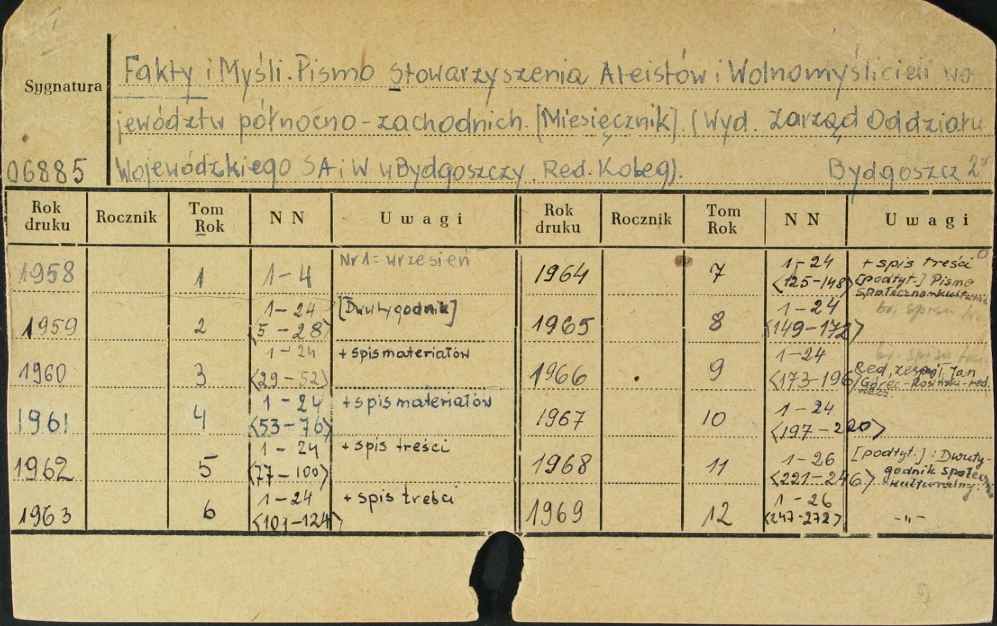 Sygnatura
06885
Fakty i Myśli. Pismo Stowarzyszenia Ateistów i Wolnomyślicieli wo-
jewództw północno-zachodnich. [Miesięcznik]. (Wyd. Zarząd Oddziału
Wojewódzkiego SAiW w Bydgoszczy. Red. Koleg). Bydgoszcz
Rok druku Rocznik Tom Rok N N Uwagi Rok druku Rocznik Tom Rok N N Uwagi
1958 1 1-4 Nr 1 = wrzesień
1959 2 1-24 <5-28> [Dwutygodnik]
1960 3 1-24 <29-52> + spis materiałów
1961 4 1-24 <53-76> + spis materiałów
1962 5 1-24 <77-100> + spis treści
1963 6 1-24 <101-124> + spis treści
1964 7 1-24 <125-148> + spis treści [podtyt.] Pismo
1965 8 1-24 <149-172>
1966 9 1-24 <173-196> Red. zespół Jan Górec-Rosiński - red.
1967 10 1-24 <197-220>
1968 11 1-26 <221-246> [podtyt.]: Dwuty-
godnik społeczno
kulturalny.
1969 12 1-26 <247-272> -"-